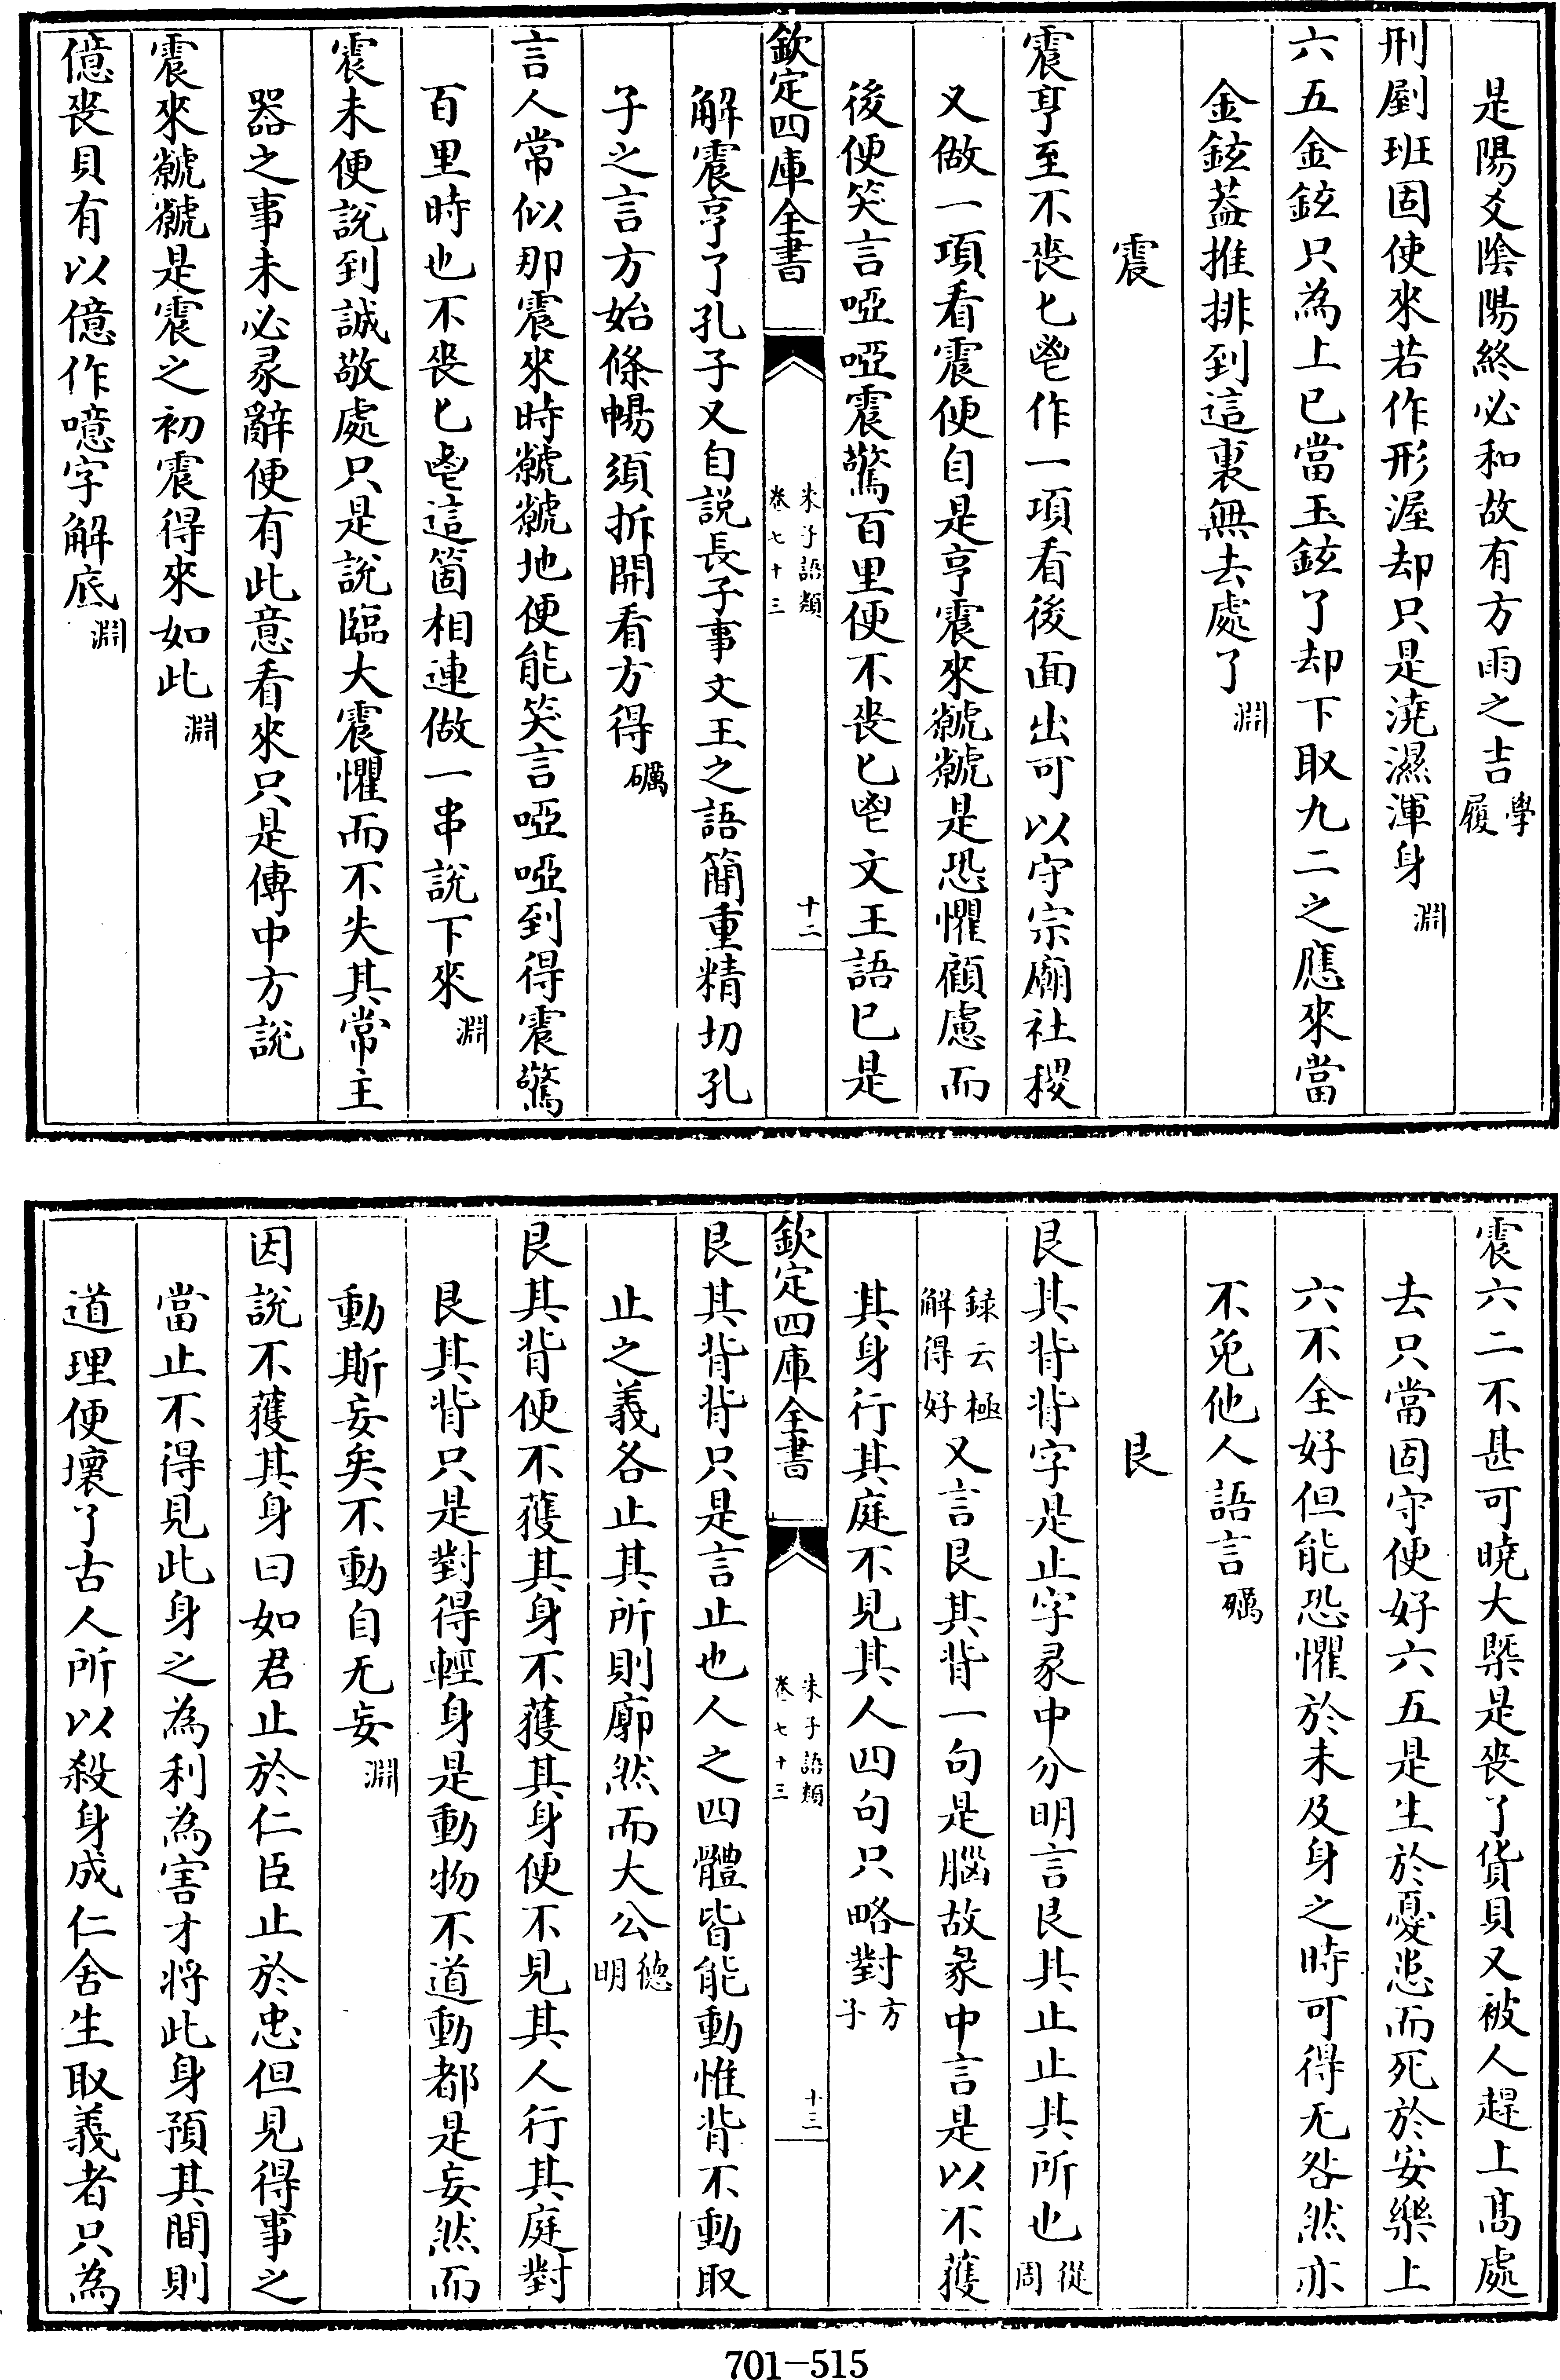 是陽爻陰陽終必和故有方雨之吉學履
刑剭班固使來若作形渥却只是澆濕渾身淵
六五金鉉只為上已當玉鉉了却下取九二之應來當
金鉉蓋推排到這裏無去處了淵
震
震亨至不喪匕鬯作一項看後面出可以守宗廟社稷
又做一項看震便自是亨震來虩虩是恐懼顧慮而
後便笑言啞啞震驚百里便不喪匕鬯文王語已是
欽定四庫全書
朱子語類
卷七十三
十二
解震亨了孔子又自說長子事文王之語簡重精切孔
子之言方始條暢須拆開看方得礪
言人常似那震來時虩虩地便能笑言啞啞到得震驚
百里時也不喪匕鬯這箇相連做一串說下來淵
震未便說到誠敬處只是說臨大震懼而不失其常主
器之事未必彖辭便有此意看來只是傳中方說
震來虩虩是震之初震得來如此淵
億喪貝有以億作噫字解底淵
震六二不甚可曉大槩是喪了貨貝又被人趕上高處
去只當固守便好六五是生於憂患而死於安樂上
六不全好但能恐懼於未及身之時可得无咎然亦
不免他人語言礪
艮
艮其背背字是止字彖中分明言艮其止止其所也從周
錄云極
解得好
又言艮其背一句是腦故彖中言是以不獲
其身行其庭不見其人四句只略對方子
欽定四庫全書
朱子語類
卷七十三
十三
艮其背背只是言止也人之四體皆能動惟背不動取
止之義各止其所則廓然而大公德明
艮其背便不獲其身不獲其身便不見其人行其庭對
艮其背只是對得輕身是動物不道動都是妄然而
動斯妄矣不動自无妄淵
因說不獲其身曰如君止於仁臣止於忠但見得事之
當止不得見此身之為利為害才將此身預其間則
道理便壞了古人所以殺身成仁舍生取義者只為
701-515